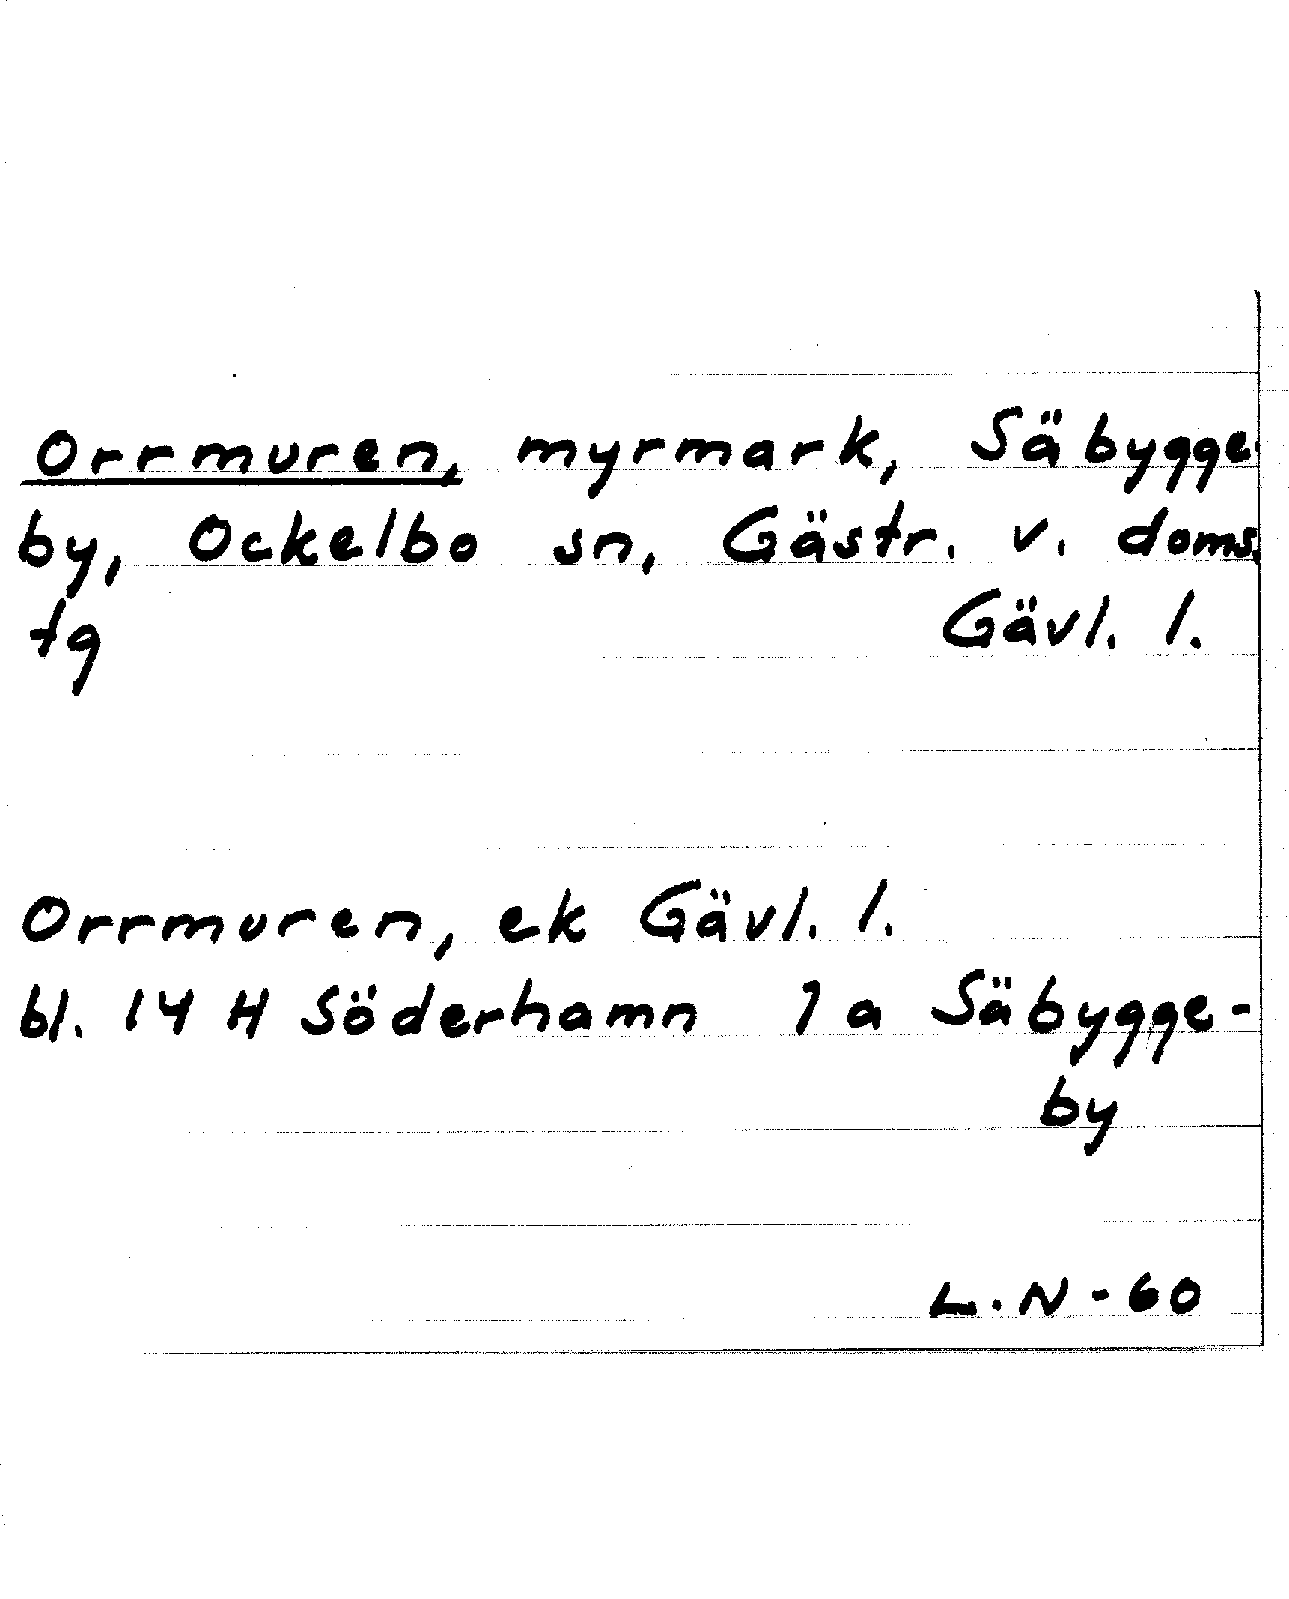 Orrmuren, myrmark, Säbygge-
by, Ockelbo sn, Gästr. v. doms.
tg Gävl. l.
Orrmuren, ek Gävl. l.
bl. 14 H Söderhamn 1 a Säbygge-
by
L.N-60